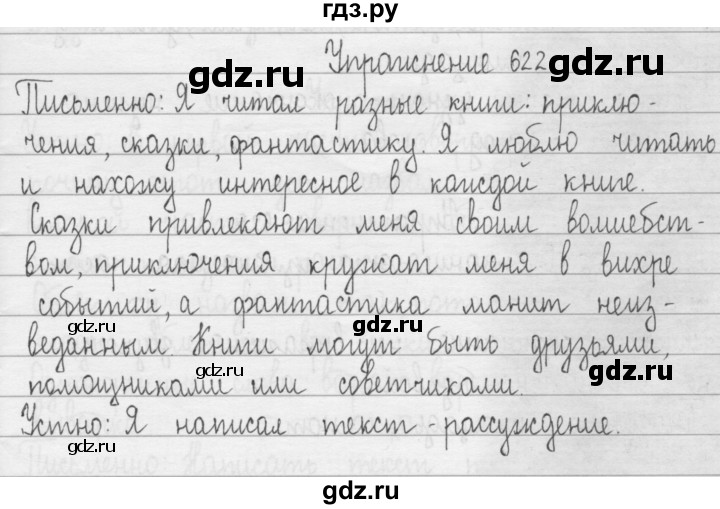 гдз.ру
gdz.ru
gdz.ru
Упражнение 622
Письменно: Я читал разные книги: приклю-
чения, сказки, фантастику. Я люблю читать
и нахожу интересное в каждой книге.
Сказки привлекают меня своим волшебст-
вом, приключения кружат меня в вихре
событий, а фантастика манит неиз-
gdz.ru
gdz.ru
веданным. Книги могут быть друзьями,
gdz.ru
gdz.ru
помощниками или советчиками.
Устно: Я написал текст-рассуждение.
gdz.ru
gdz.ru
gdz.ru